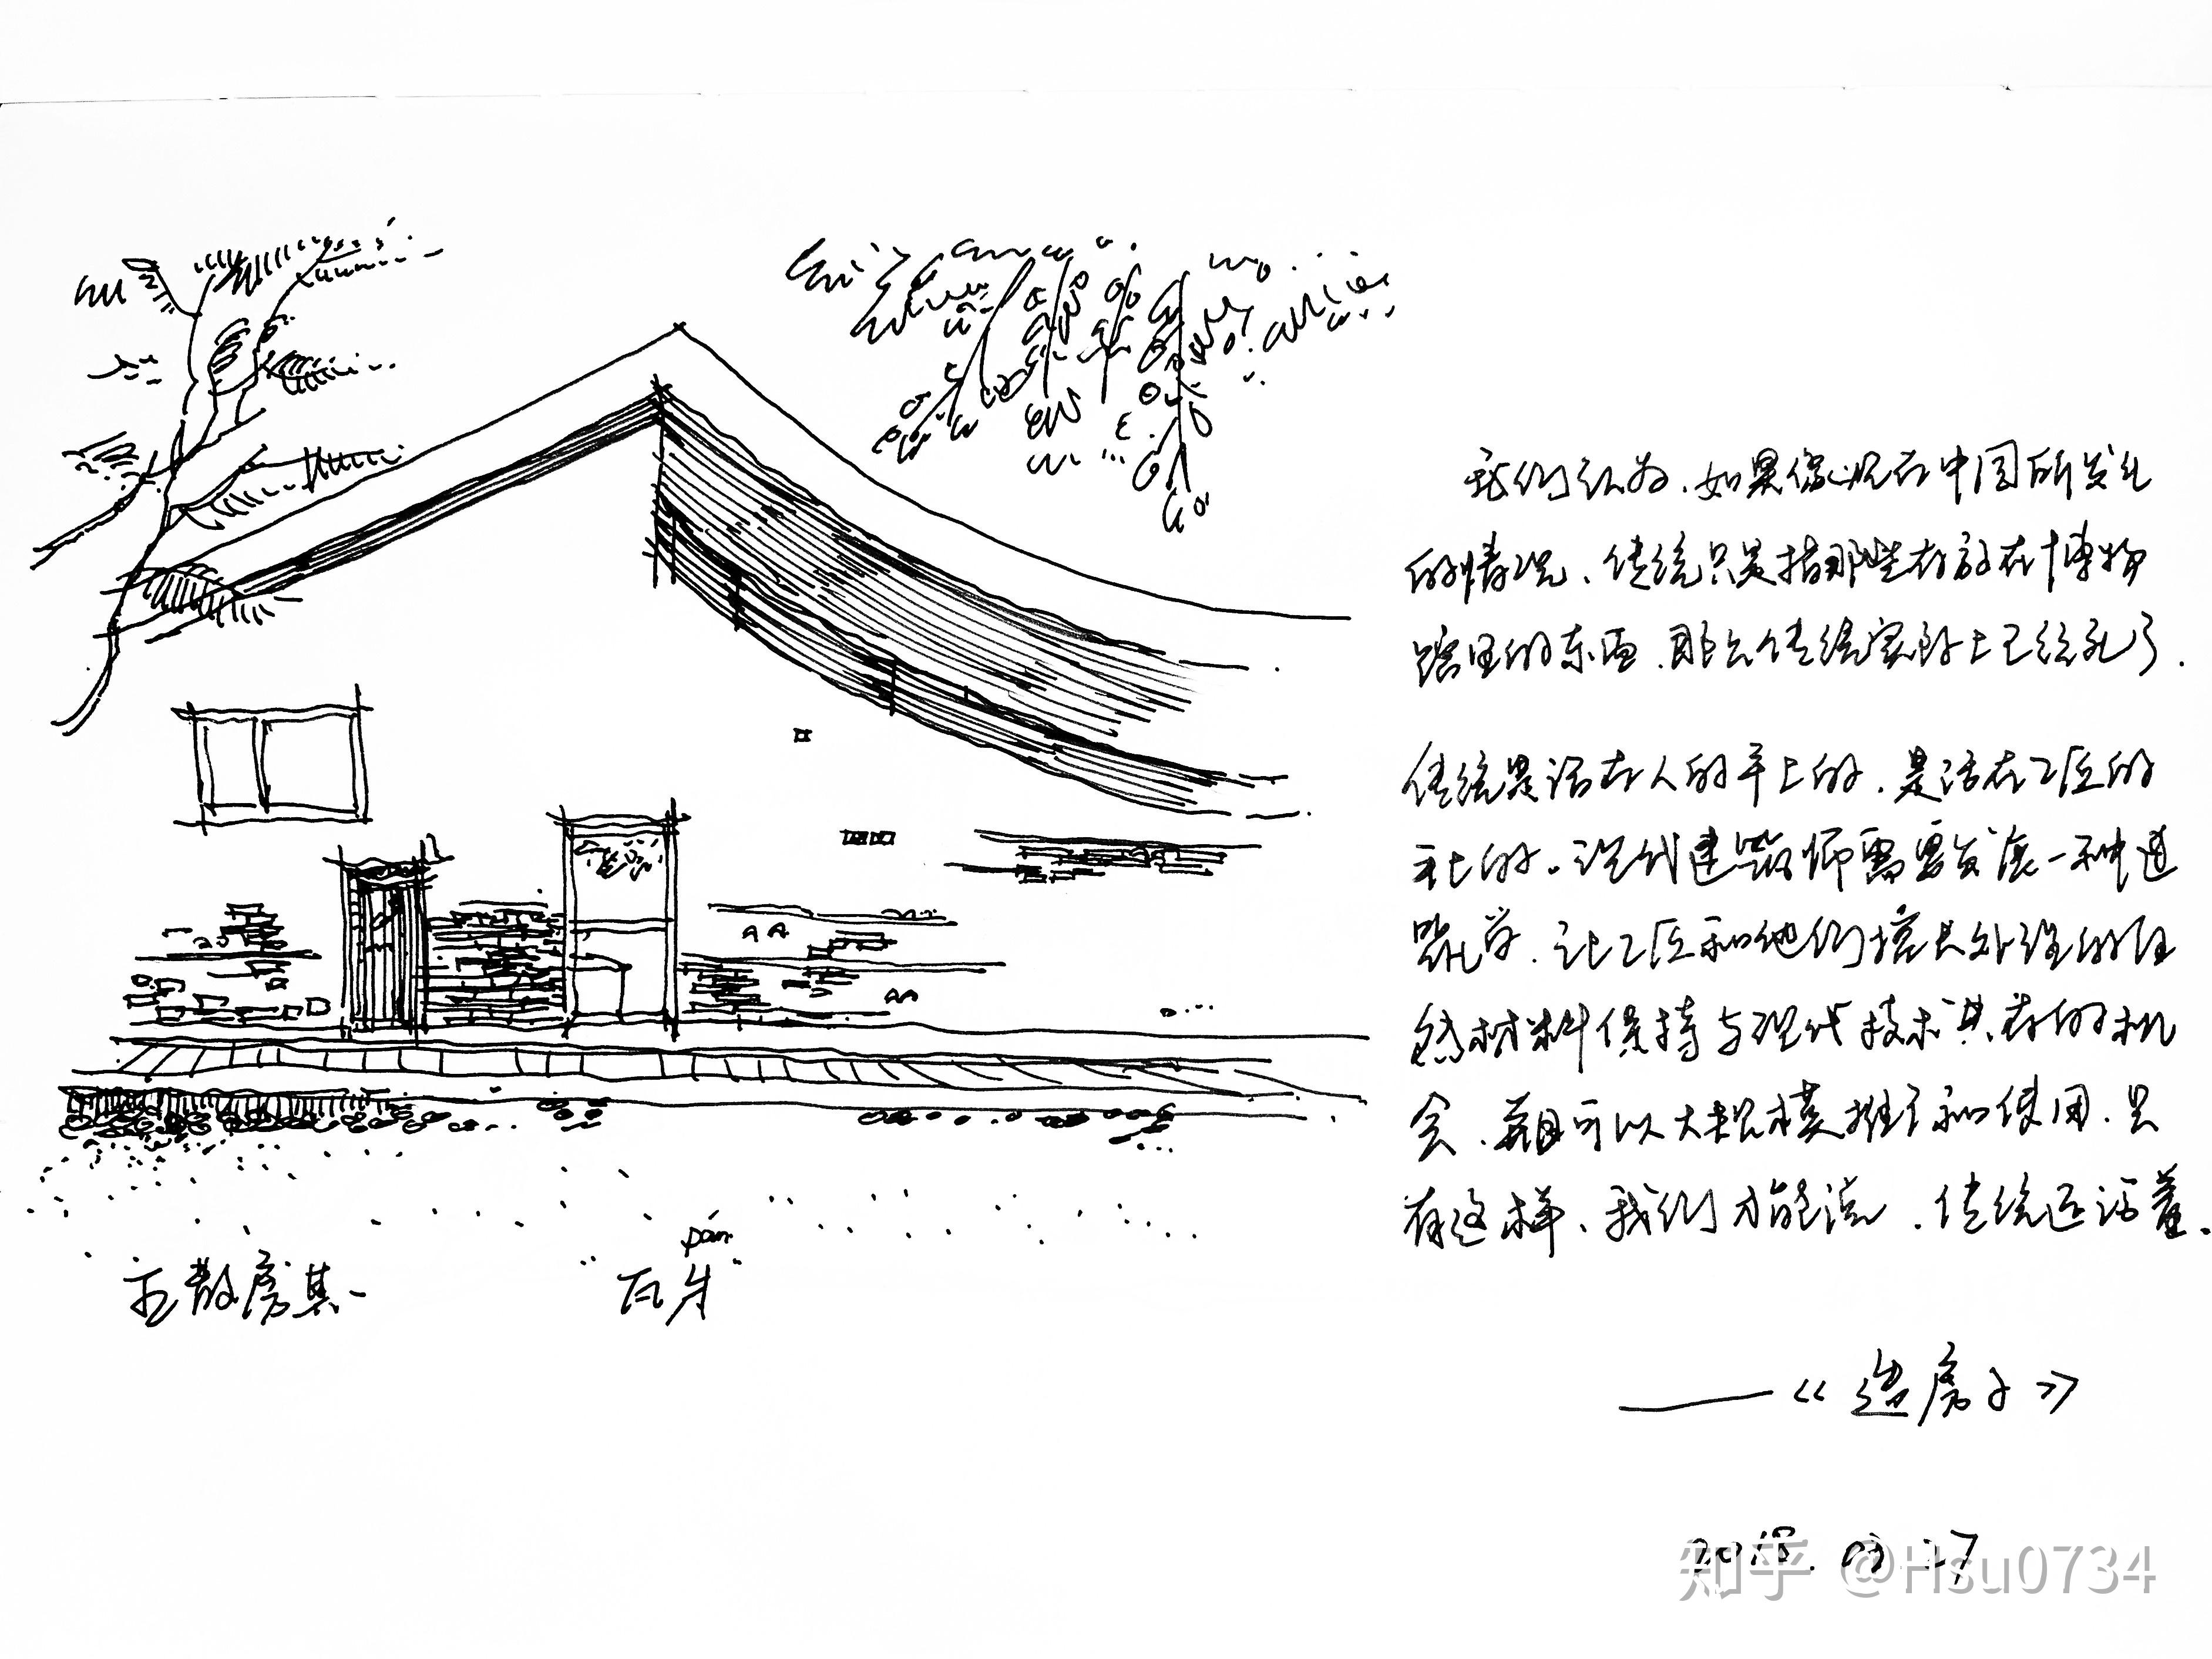 我们认为、如果像现在中国所发生
的情况、传统只是指那些存放在博物
馆里的东西、那么传统实际上已经死了.
传统是活在人的手上的、是活在工匠的
手上的。现代建筑师需要发展一种建
筑学、让工匠和他们擅长处理的自
然材料保持与现代技术共存的机
会、并且可以大规模推广和使用、只
有这样、我们才能说、传统还活着.
——《造房子》
五散房其一
pán
"瓦爿"
2018. 27
知乎 @Hsu0734